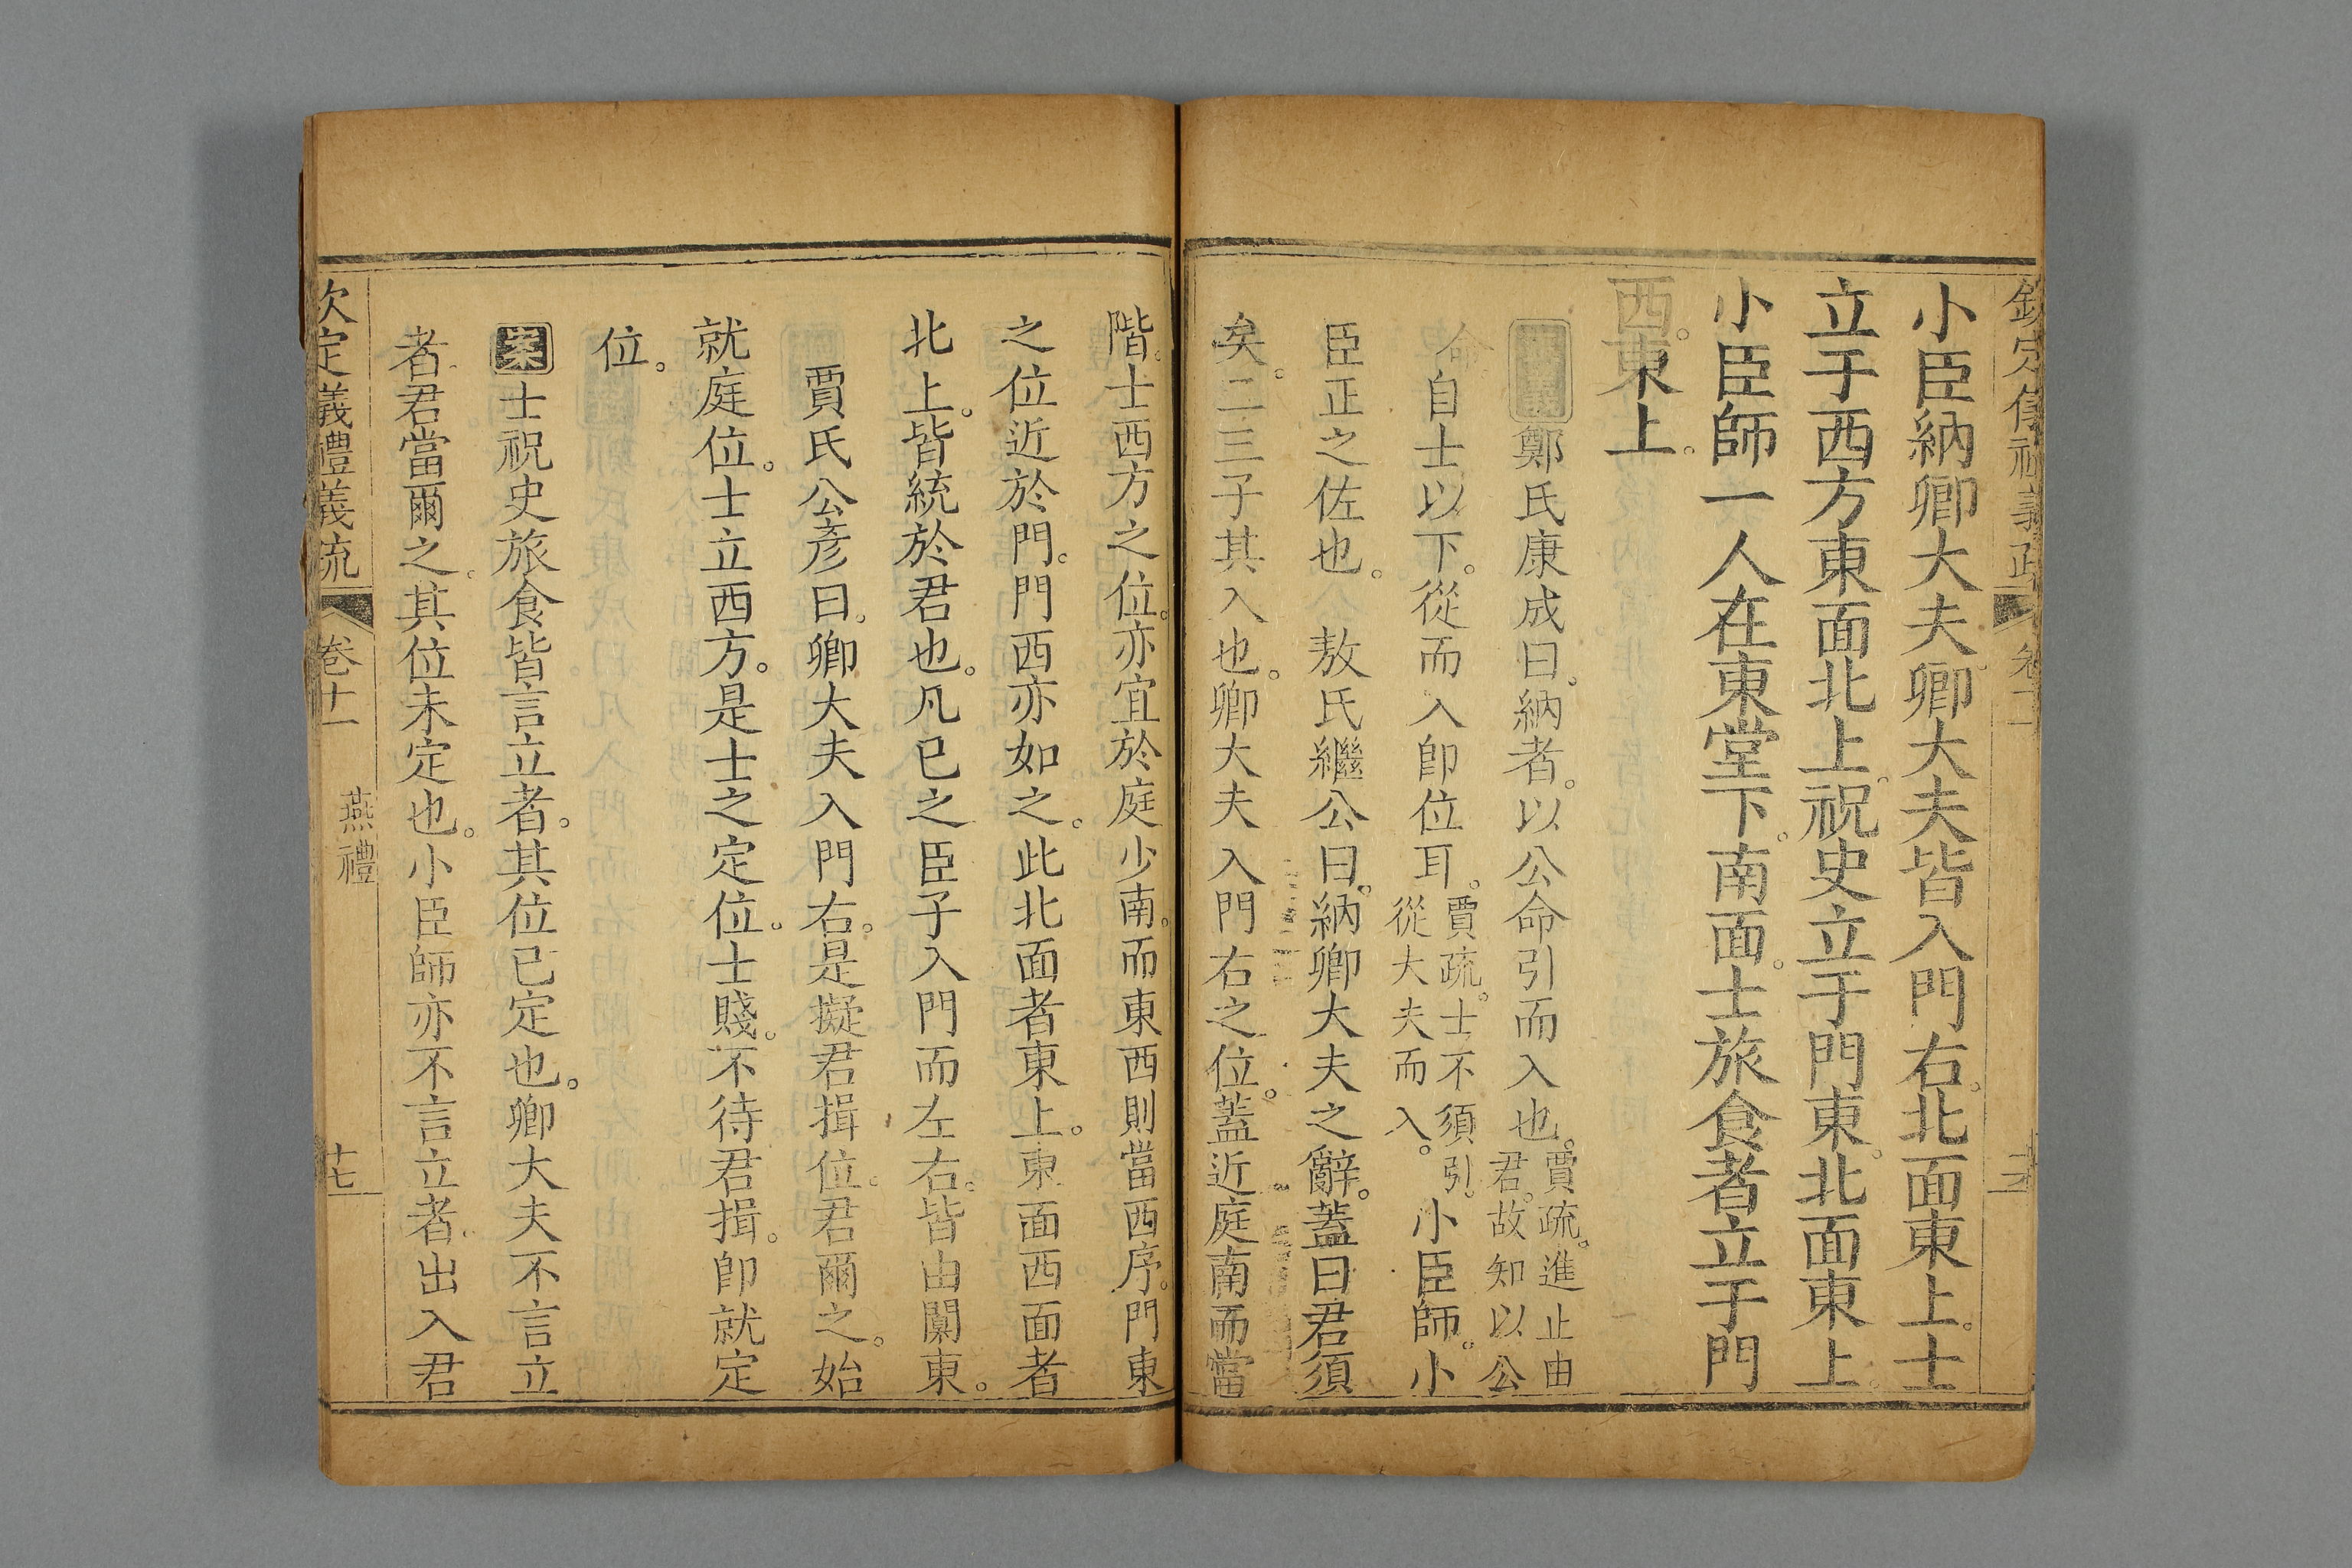 欽定儀禮義疏 卷十一
小臣納卿大夫卿大夫皆入門右。北面東上。士
立于西方東面北上。祝史立于門東。北面東上。
小臣師一人在東堂下。南面。士旅食者立于門
西。東上。
鄭氏康成曰。納者。以公命引而入也。賈疏。進止由君。故知以公
命自士以下。從而入卽位耳。賈疏。士不須引。從大夫而入。小臣師。小
臣正之佐也。 敖氏繼公曰。納卿大夫之辭。蓋曰君須
矣。二三子其入也。卿大夫入門右之位。蓋近庭南而當
階。士西方之位。亦宜於庭少南。而東西則當西序。門東
之位近於門。門西亦如之。此北面者東上。東面西面者
北上。皆統於君也。凡已之臣子入門而左右。皆由闑東。
賈氏公彥曰。卿大夫入門右。是擬君揖位。君爾之。始
就庭位。士立西方。是士之定位。士賤。不待君揖。卽就定
位。
案士祝史旅食皆言立者。其位已定也。卿大夫不言立
者。君當爾之。其位未定也。小臣師亦不言立者。出入君
欽定儀禮義疏 卷十一 燕禮 十七